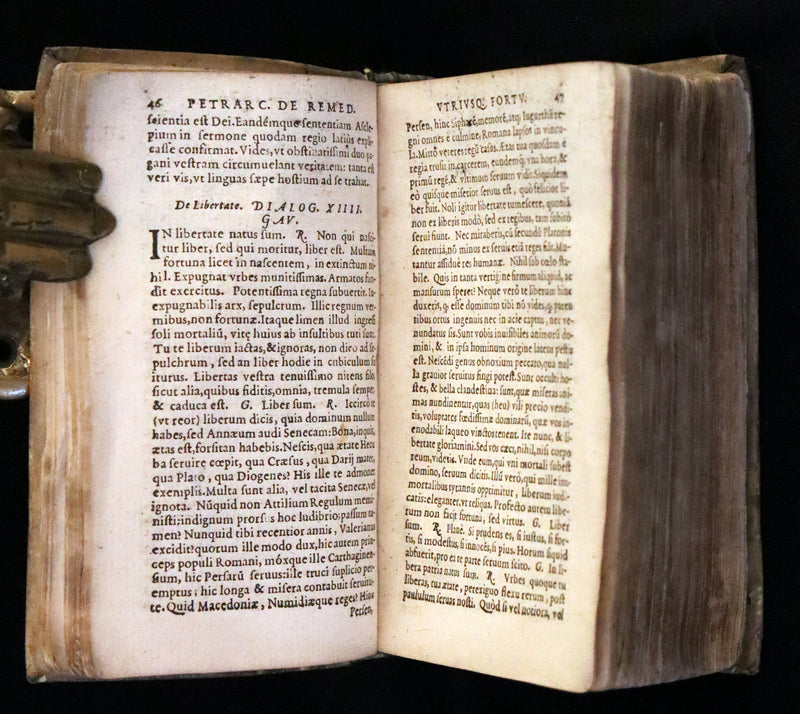 46 PETRARC. DE REMED.
scientia est Dei. Eandémque sententiam Ascle-
pium in sermone quodam regio latiùs expli-
casse confirmat. Vides, vt obstinatissimi duo pa-
gani vestram circumuelant veritatem: tanta est
veri vis, vt linguas sæpe hostium ad se trahat.
De Libertate. DIALOG. XIIII.
GAV.
IN libertate natus sum. R. Non qui nasci-
tur liber, sed qui moritur, liber est. Multum
fortuna licet in nascentem, in extinctum ni-
hil. Expugnat vrbes munitissimas. Armatos fun-
dit exercitus. Potentissima regna subuertit. In-
expugnabilis arx, sepulcrum. Illic regnum ver-
mibus, non fortunæ. Itaque limen illud ingressi
soli mortaliū, vitę huius ab insultibus tuti sunt.
Tu te liberum iactas, & ignoras, non dico ad se-
pulchrum, sed an liber hodie in cubiculum sis
iturus. Libertas vestra tenuissimo nitens filo,
sicut alia, quibus fiditis, omnia, tremula semper,
& caduca est. G. Liber sum. R. Iccircò te
(vt reor) liberum dicis, quia dominum nullum
habes, sed Annæum audi Senecam: Bona, inquit,
ætas est, forsitan habebis. Nescis, qua ætate Hecu
ba seruire cœpit, qua Crœsus, qua Darij mater,
qua Plato, qua Diogenes? His ille te admonet
exemplis. Multa sunt alia, vel tacita Senecæ, vel
ignota. Núquid non Attilium Regulum memi-
nisti: indignum prorsus hoc ludibrio: passum ta-
men? Nunquid tibi recentior annis, Valerianus
excidit? quorum ille modo dux, hic autem prin-
ceps populi Romani, móxque ille Carthaginen-
sium, hic Persarū seruus: ille truci suplicio per-
emptus: hic longa & misera contabuit seruitu-
te. Quid Macedoniæ, Numidiæque reges? Hinc
Persen,
VTRIVSQ. FORTV. 47
Persen, hinc Siphacē, memorē, atq; Iugurthā re-
gni omnes è culmine, Romana lapsos in vincu-
la. Mitto veteres regū casus. Ætas tua quosdam è
regia trusit in carcerem, eundemq; vna hora, &
primū regē, & vltimum seruum vidit. Siquidem
eò quisque miserior seruus est, quò felicior li-
ber fuit. Noli igitur libertate tumescere, quoniā
non ex liberis modò, sed ex regibus, tam subitò
serui fiunt. Nec mitaberis, cū secundū Platonis
sententiā, nō minus ex seruis etiā reges fiāt. Mu-
tantur assiduè res humanæ. Nihil sub cœlo sta-
bile. Quis in tanta vertigine firmum aliquid, ac
mansurum speret? Neque verò te liberum hinc
duxeris, q; esse dominum tibi nō vides, q; paren
tibus ortus ingenuis nec in acie captus, nec ve-
nundatus sis. Sunt vobis inuisibiles animorū do-
mini, & in ipsa hominum origine latens pestis
est. Nescēdi genus obnoxium peccato, qua nul-
la grauior seruitus fingi potest. Sunt occulti ho-
stes, & bella clandestina: sunt, quæ miseras ani-
mas nundinentur, quas (heu) vili precio vendi-
tis, voluptates fœdissimæ dominarū, quæ vos in-
enodabili laqueo vinctos tenent. Ite nunc, & li-
bertate gloriamini. Sed vos cæci, nihil, nisi corpo
reum, videtis. Vnde eum, qui vni mortali subest
domino, seruum dicitis. Illū verò, qui mille im-
mortalibus tyrannis opprimitur, liberum iudi-
catis: eleganter, vt reliqua. Profecto autem libe-
rum non facit fortuna, sed virtus. G. Liber
sum. R. Planè. Si prudens es, si iustus, si for-
tis, si modestus, si innocēs, si pius. Horum siquid
abfuerit, pro ea te parte seruum scito. G. In li-
bera patria natus sum. R. Vrbes quoque tu
liberas, tua ætate, perexiguo flexu rerum, post
paululum seruas nosti. Quòd si vel notiora, vel